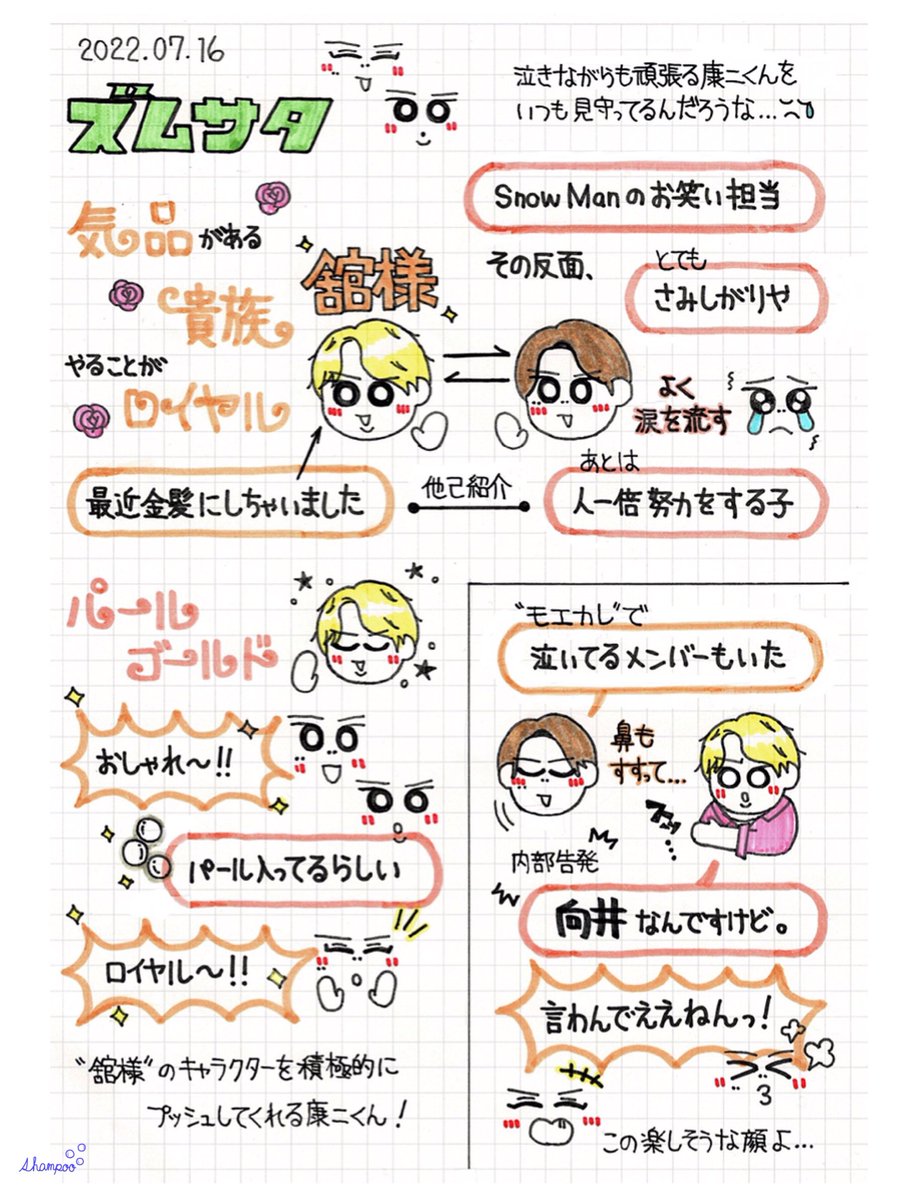 2022.07.16
ズムサタ
泣きながらも頑張る康二くんを
いつも見守ってるんだろうな…
気品がある
貴族
やることが
ロイヤル
舘様
最近金髪にしちゃいました
他己紹介
Snow Manのお笑い担当
その反面、
とても
さみしがりや
よく
涙を流す
あとは
人一倍努力をする子
パール
ゴールド
おしゃれ〜!!
パール入ってるらしい
ロイヤル〜!!
"舘様"のキャラクターを積極的に
プッシュしてくれる康二くん!
"モエカレ"で
泣いてるメンバーもいた
鼻も
すすって…
ズッ
内部告発
向井なんですけど。
言わんでええねんっ!
この楽しそうな顔よ…
Shampoo